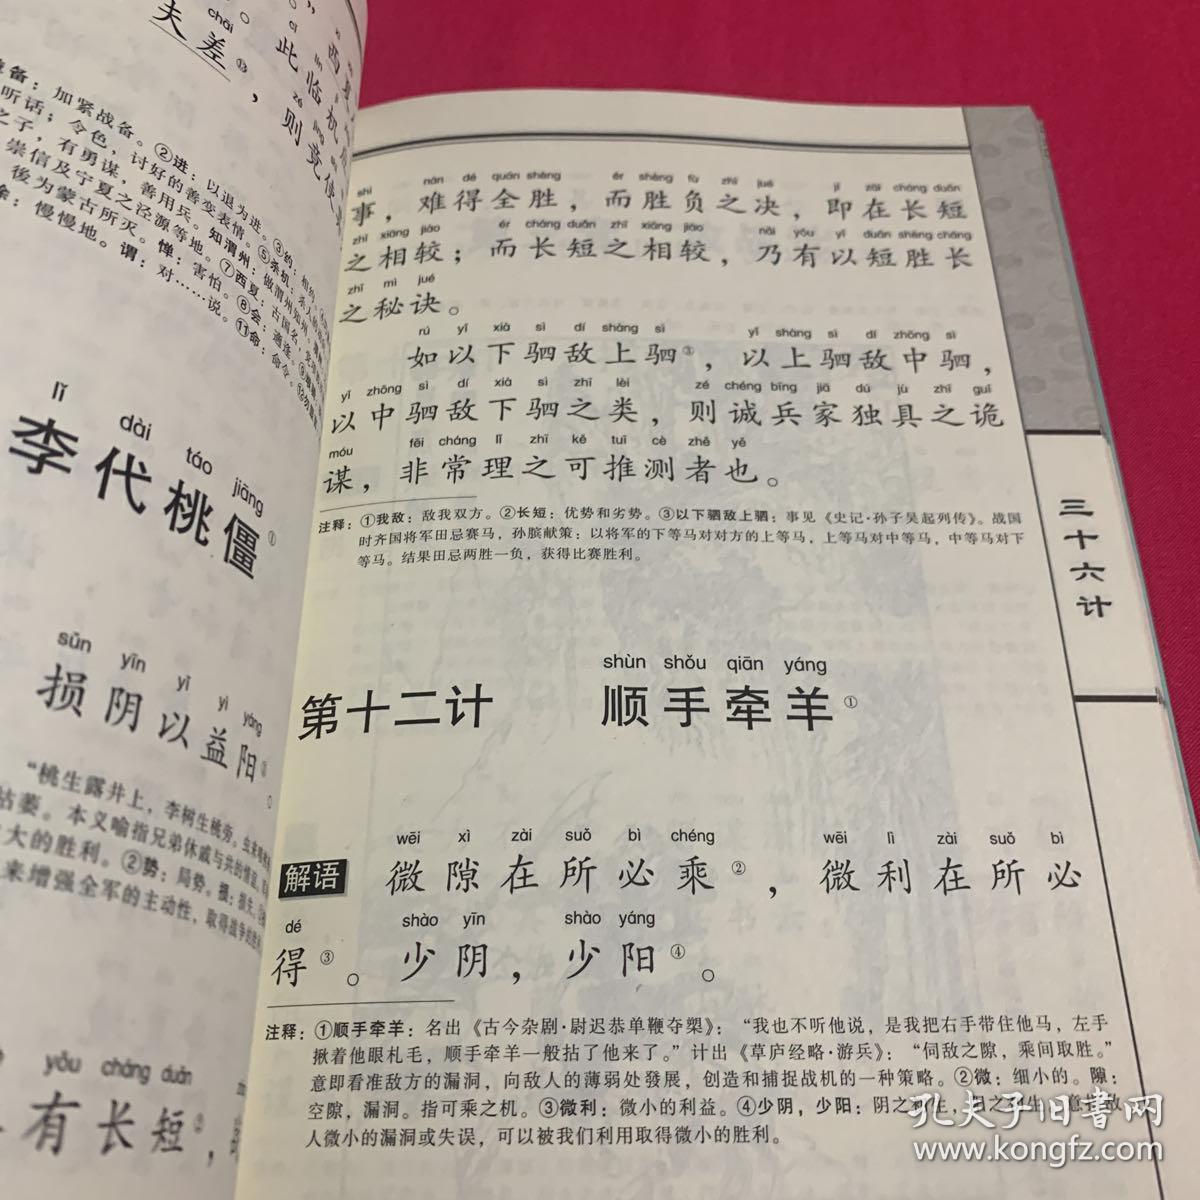 chāi
夫差⑬，
西夏
此临机
则竟使
备：加紧战备。②进：以退为进。③约：相约。
听话；令色，讨好的善变表情。⑤杀机：杀人的
之子，有勇谋，善用兵。知渭州：做渭州知州。
崇信及宁夏之泾源等地。⑦西夏：古国名，
後为蒙古所灭。惮：害怕。⑧会：适逢。
慢慢地。谓：对……说。⑪命：命令。
lǐ dài táo jiāng
李代桃僵①
sǔn yīn yǐ yì yáng
损阴以益阳③。
“桃生露井上，李树生桃旁。虫来啮桃
枯萎。本义喻指兄弟休戚与共的情谊，
大的胜利。②势：局势。损：损失。
来增强全军的主动性，取得战争的胜利
yǒu cháng duǎn
有长短②，
shì nán dé quán shèng ér shèng fù zhī jué jí zài cháng duǎn
事，难得全胜，而胜负之决，即在长短
zhī xiāng jiào ér cháng duǎn zhī xiāng jiào nǎi yǒu yǐ duǎn shèng cháng
之相较；而长短之相较，乃有以短胜长
zhī mì jué
之秘诀。
rú yǐ xià sì dí shàng sì yǐ shàng sì dí zhōng sì
如以下驷敌上驷③，以上驷敌中驷，
yǐ zhōng sì dí xià sì zhī lèi zé chéng bīng jiā dú jù zhī guǐ
以中驷敌下驷之类，则诚兵家独具之诡
móu fēi cháng lǐ zhī kě tuī cè zhě yě
谋，非常理之可推测者也。
注释：①我敌：敌我双方。②长短：优势和劣势。③以下驷敌上驷：事见《史记·孙子吴起列传》。战国
时齐国将军田忌赛马，孙膑献策：以将军的下等马对对方的上等马，上等马对中等马，中等马对下
等马。结果田忌两胜一负，获得比赛胜利。
shùn shǒu qiān yáng
第十二计 顺手牵羊①
wēi xì zài suǒ bì chéng wēi lì zài suǒ bì
解语 微隙在所必乘②，微利在所必
dé shào yīn shào yáng
得③。少阴，少阳④。
注释：①顺手牵羊：名出《古今杂剧·尉迟恭单鞭夺槊》：“我也不听他说，是我把右手带住他马，左手
揪着他眼札毛，顺手牵羊一般拈了他来了。”计出《草庐经略·游兵》：“伺敌之隙，乘间取胜。”
意即看准敌方的漏洞，向敌人的薄弱处發展，创造和捕捉战机的一种策略。②微：细小的。隙：
空隙，漏洞。指可乘之机。③微利：微小的利益。④少阴，少阳：阴之初生，阳之初生。意指敌
人微小的漏洞或失误，可以被我们利用取得微小的胜利。
三十六计
孔夫子旧书网
www.kongfz.com